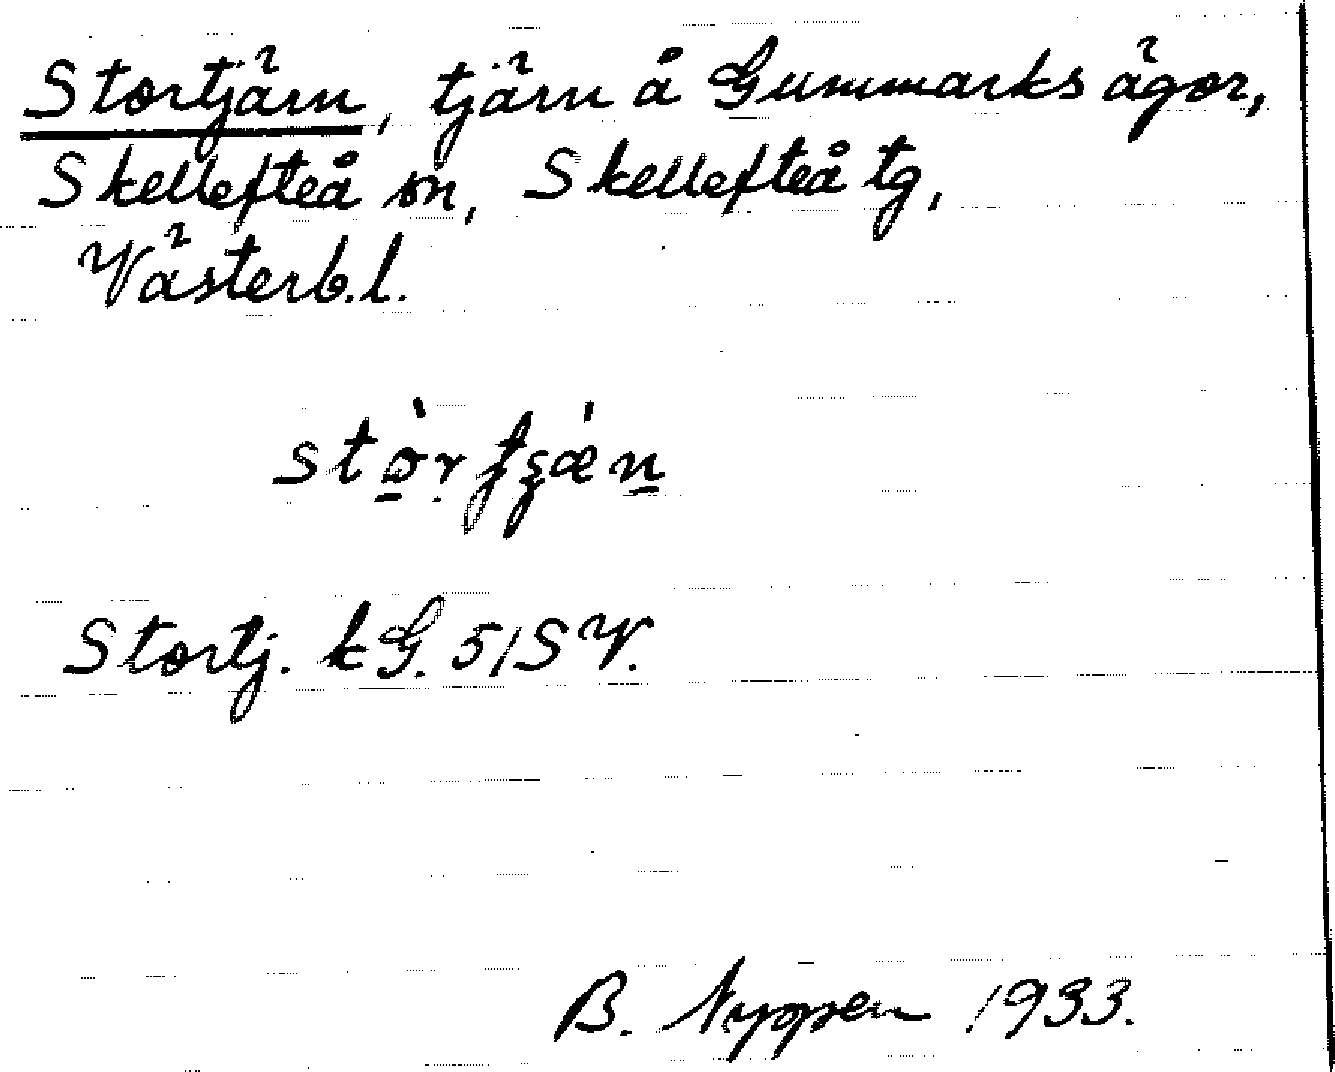 Stortjärn, tjärn å Gummarks ägor,
Skellefteå sn, Skellefteå tg,
Västerb.l.
Stortj. kG. 51SV.
B. Nyppen 1933.